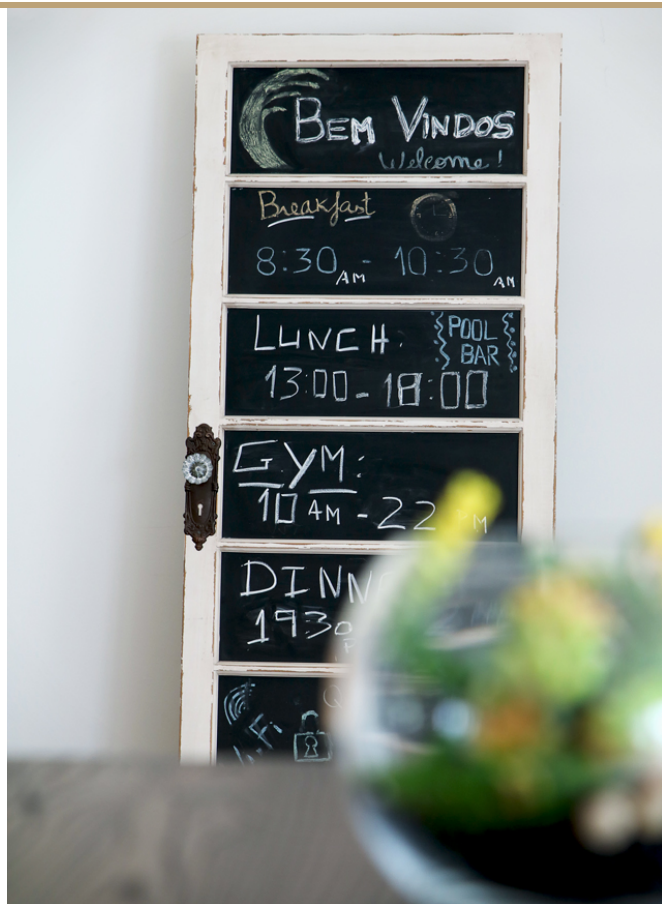 BEM VINDOS
Welcome!
Breakfast
8:30 AM - 10:30 AM
LUNCH.
POOL BAR
13:00 - 18:00
GYM:
10 AM - 22
1930